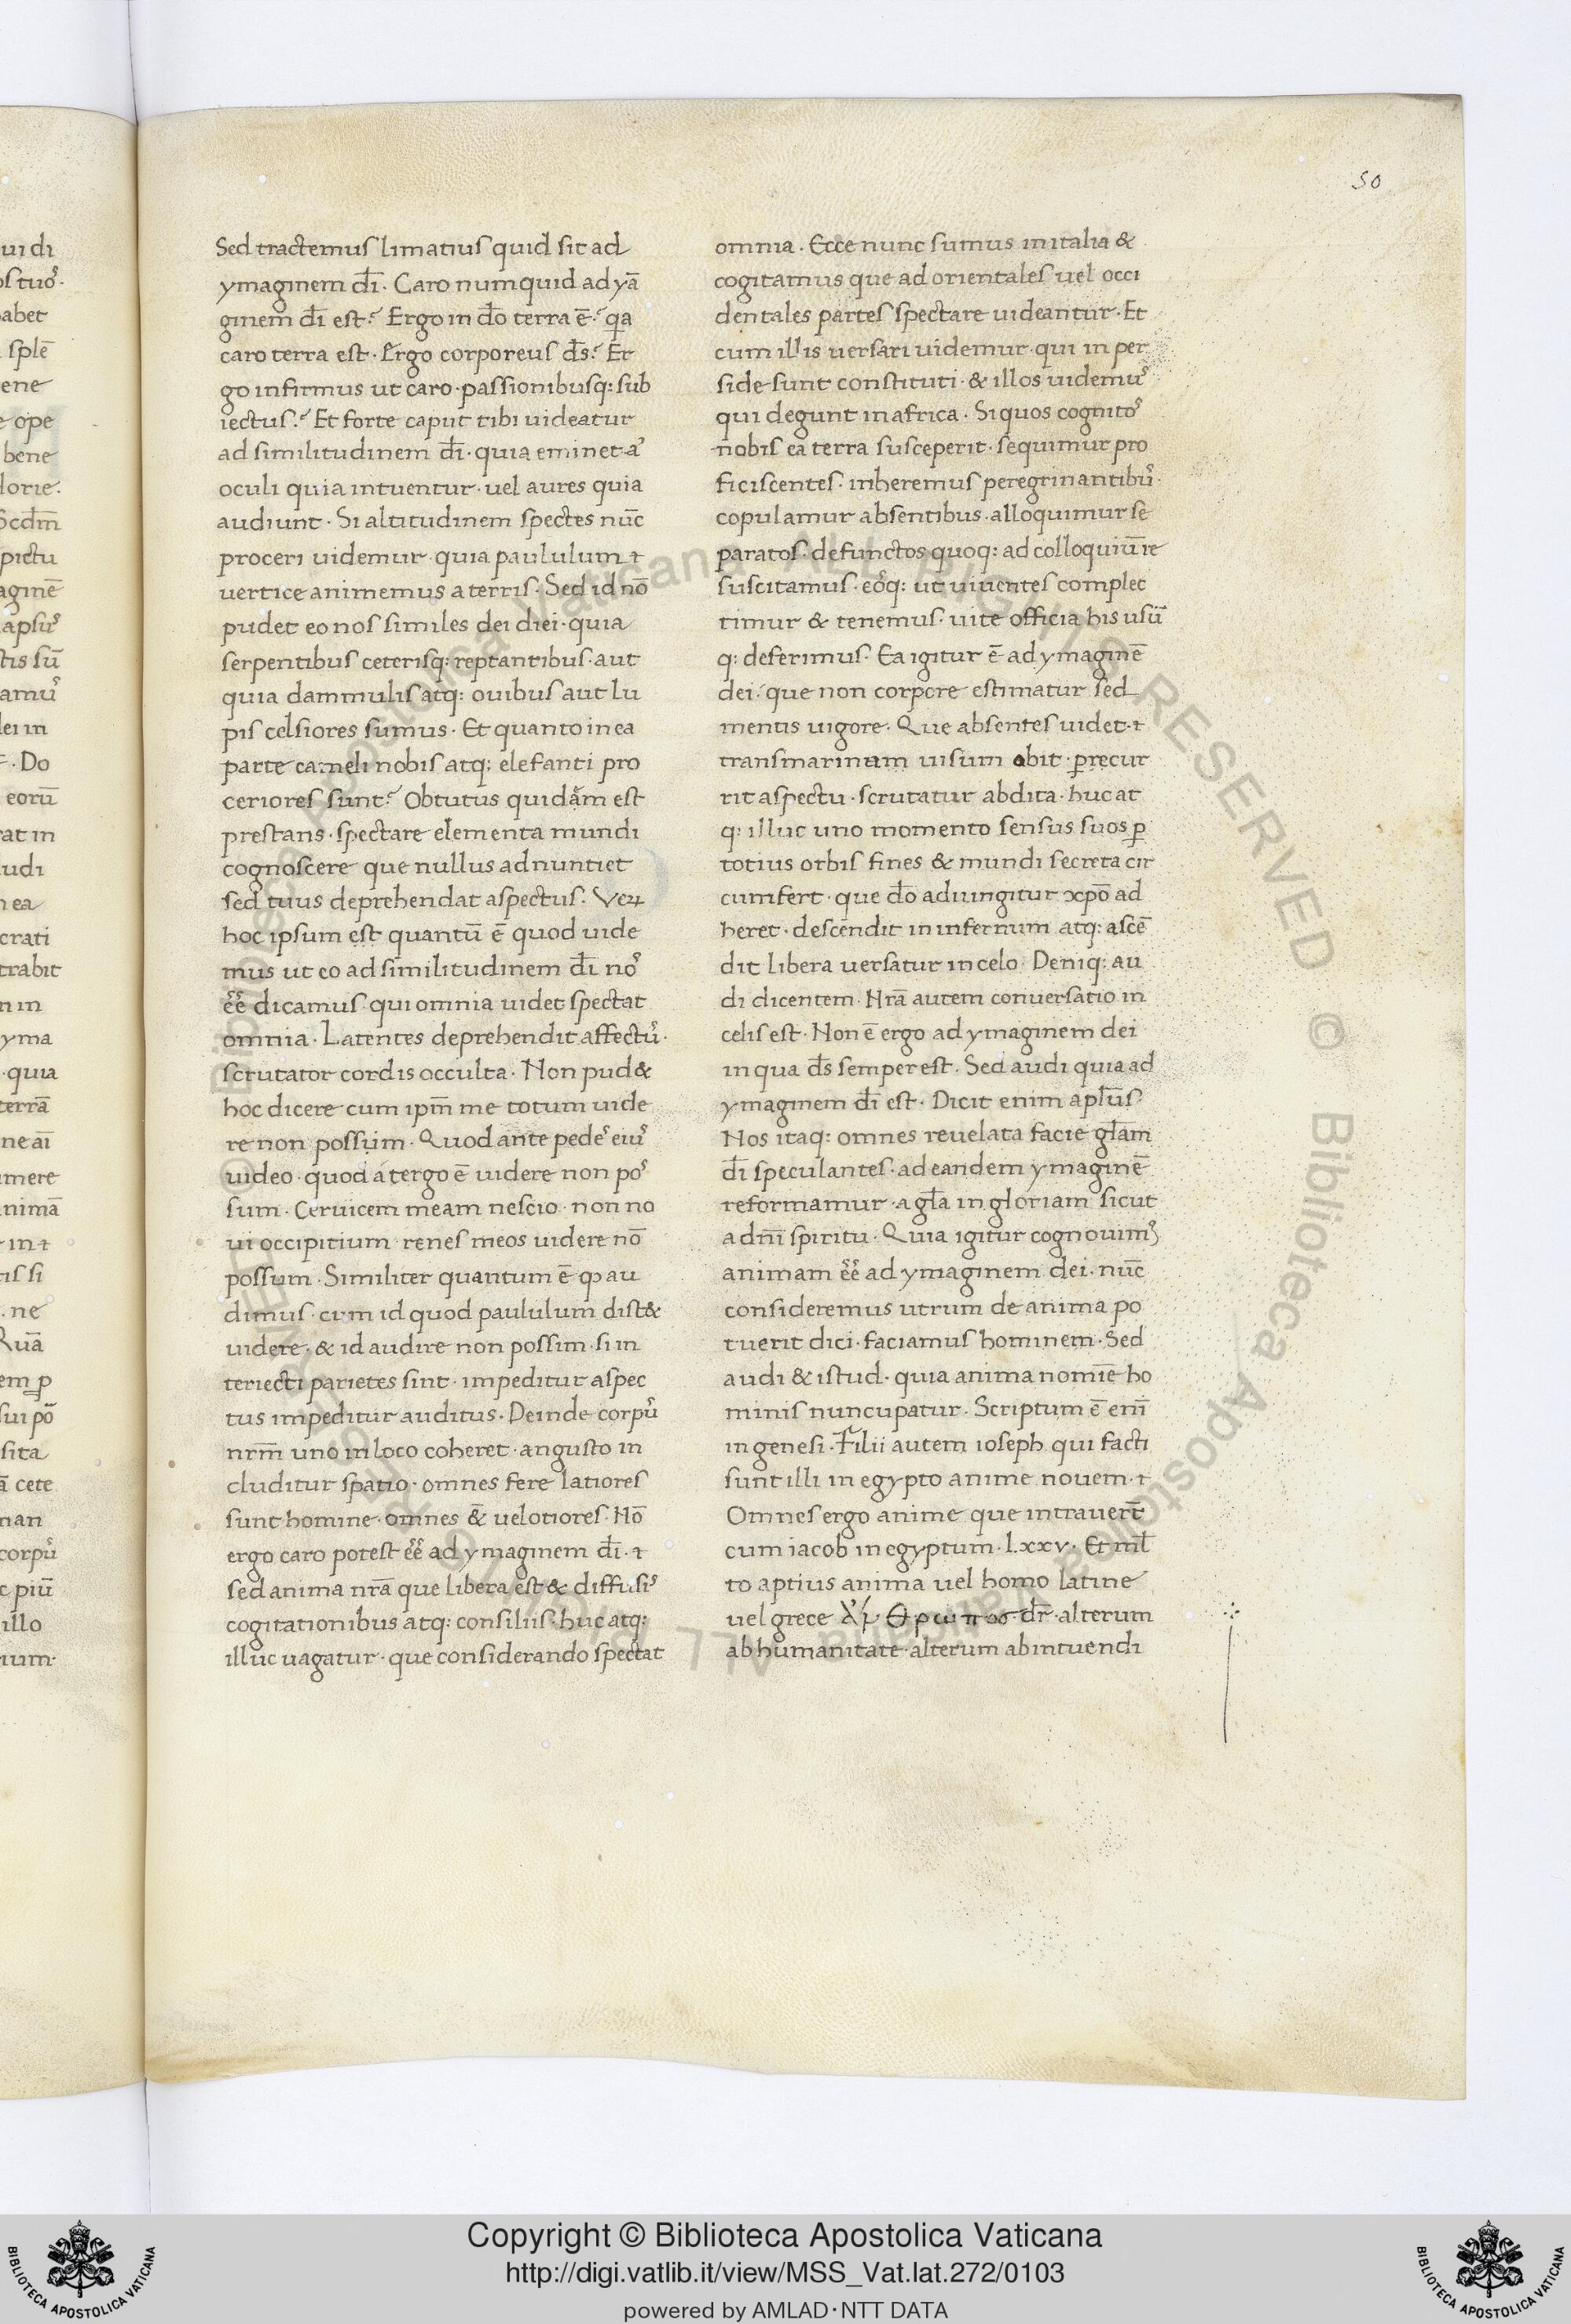 50
Sed tractemus limatius quid sit ad
ymaginem dī. Caro numquid ad yā
ginem dī est? Ergo in dō terra ē? qa
caro terra est. Ergo corporeus ds̄? Er
go infirmus ut caro. passionibusq: sub
iectus? Et forte caput tibi uideatur
ad similitudinem dī. quia eminet. aꝰ
oculi quia intuentur. uel aures quia
audiunt. Si altitudinem spectes nūc
proceri uidemur. quia paululum ⁊
uertice animemus a terris. Sed id nō
pudet eo nos similes dei diei. quia
serpentibus ceterisq: reptantibus. aut
quia dammulis atq: ouibus aut lu
pis celsiores sumus. Et quanto in ea
parte cameli nobis atq: elefanti pro
ceriores sunt? Obtutus quidam est
prestans. spectare elementa mundi
cognoscere que nullus adnuntiet
sed tuus deprehendat aspectus. Veꝝ
hoc ipsum est quantū ē quod uide
mus ut eo ad similitudinem dī noꝰ
ēē dicamus. qui omnia uidet spectat
omnia. Latentes deprehendit affectuꝰ.
scrutator cordis occulta. Non pud&
hoc dicere cum ipm̄ me totum uide
re non possum. Quod ante pedeꝰ eiuꝰ
uideo. quod a tergo ē uidere non poꝰ
sum. Ceruicem meam nescio. non no
ui occipitium. renes meos uidere nō
possum. Similiter quantum ē qꝫ au
dimus. cum id quod paululum dist&
uidere. & id audire non possim. si in
teriecti parietes sint. impeditur aspec
tus impeditur auditus. Deinde corpuꝰ
nrm̄ uno in loco coheret. angusto in
cluditur spatio. omnes fere latiores
sunt homine. omnes & uelotiores. Nō
ergo caro potest ēē ad ymaginem dī. ⁊
sed anima nrā que libera est & diffusiꝰ
cogitationibus atq: consiliis. huc atq:
illuc uagatur. que considerando spectat
omnia. Ecce nunc sumus in italia &
cogitamus que ad orientales uel occi
dentales partes spectare uideantur. Et
cum illis uersari uidemur. qui in per
side sunt constituti. & illos uidemuꝰ
qui degunt in africa. Si quos cognitoꝰ
nobis ea terra susceperit. sequimur pro
ficiscentes. inheremus peregrinantibuꝰ.
copulamur absentibus. alloquimur se
paratos. defunctos quoq: ad colloquiū re
suscitamus. eoꝰq: ut uiuentes complec
timur & tenemus. uite officia his usū
q: deferimus. Ea igitur ē ad ymaginē
dei. que non corpore estimatur sed
mentis uigore. Que absentes uidet. ⁊
transmarinum uisum obit. ꝑrecur
rit aspectu. scrutatur abdita. huc at
q: illuc uno momento sensus suos ꝑ
totius orbis fines & mundi secreta cir
cumfert. que dō adiungitur xpō ad
heret. descendit in infernum atq: ascē
dit libera uersatur in celo. Deniq: au
di dicentem. Nrā autem conuersatio in
celis est. Non ē ergo ad ymaginem dei
in qua ds̄ semper est. Sed audi quia ad
ymaginem dī est. Dicit enim aplūs.
Nos itaq: omnes reuelata facie glām
dī speculantes. ad eandem ymaginē
reformamur. a glā in gloriam sicut
a dnī spiritu. Quia igitur cognouimꝰ
animam ēē ad ymaginem dei. nūc
consideremus utrum de anima po
tuerit dici. faciamus hominem. Sed
audi & istud. quia anima nomīe ho
minis nuncupatur. Scriptum ē enī
in genesi. Filii autem ioseph qui facti
sunt illi in egypto anime nouem. ⁊
Omnes ergo anime que intrauert̄
cum iacob in egyptum. Lxxv. Et ml̄
to aptius anima uel homo latine
uel grece ἄνθρωπος dr̄. alterum
ab humanitate. alterum ab intuendi
Copyright © Biblioteca Apostolica Vaticana
http://digi.vatlib.it/view/MSS_Vat.lat.272/0103
powered by AMLAD · NTT DATA